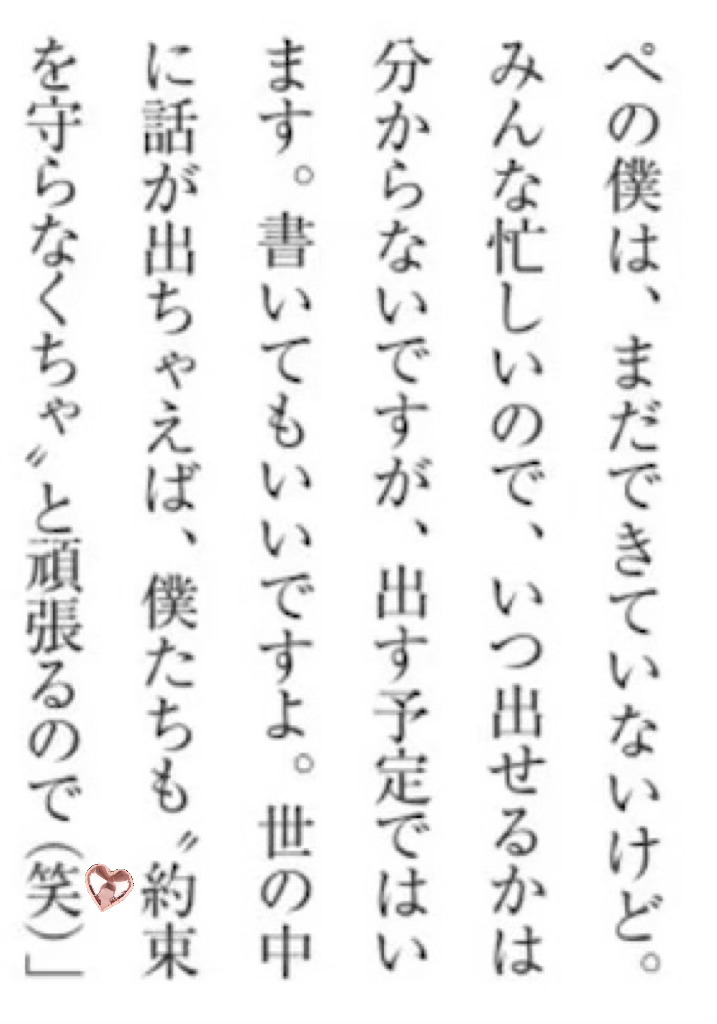 ペの僕は、まだできていないけど。
みんな忙しいので、いつ出せるかは
分からないですが、出す予定ではい
ます。書いてもいいですよ。世の中
に話が出ちゃえば、僕たちも〝約束
を守らなくちゃ〟と頑張るので（笑）」